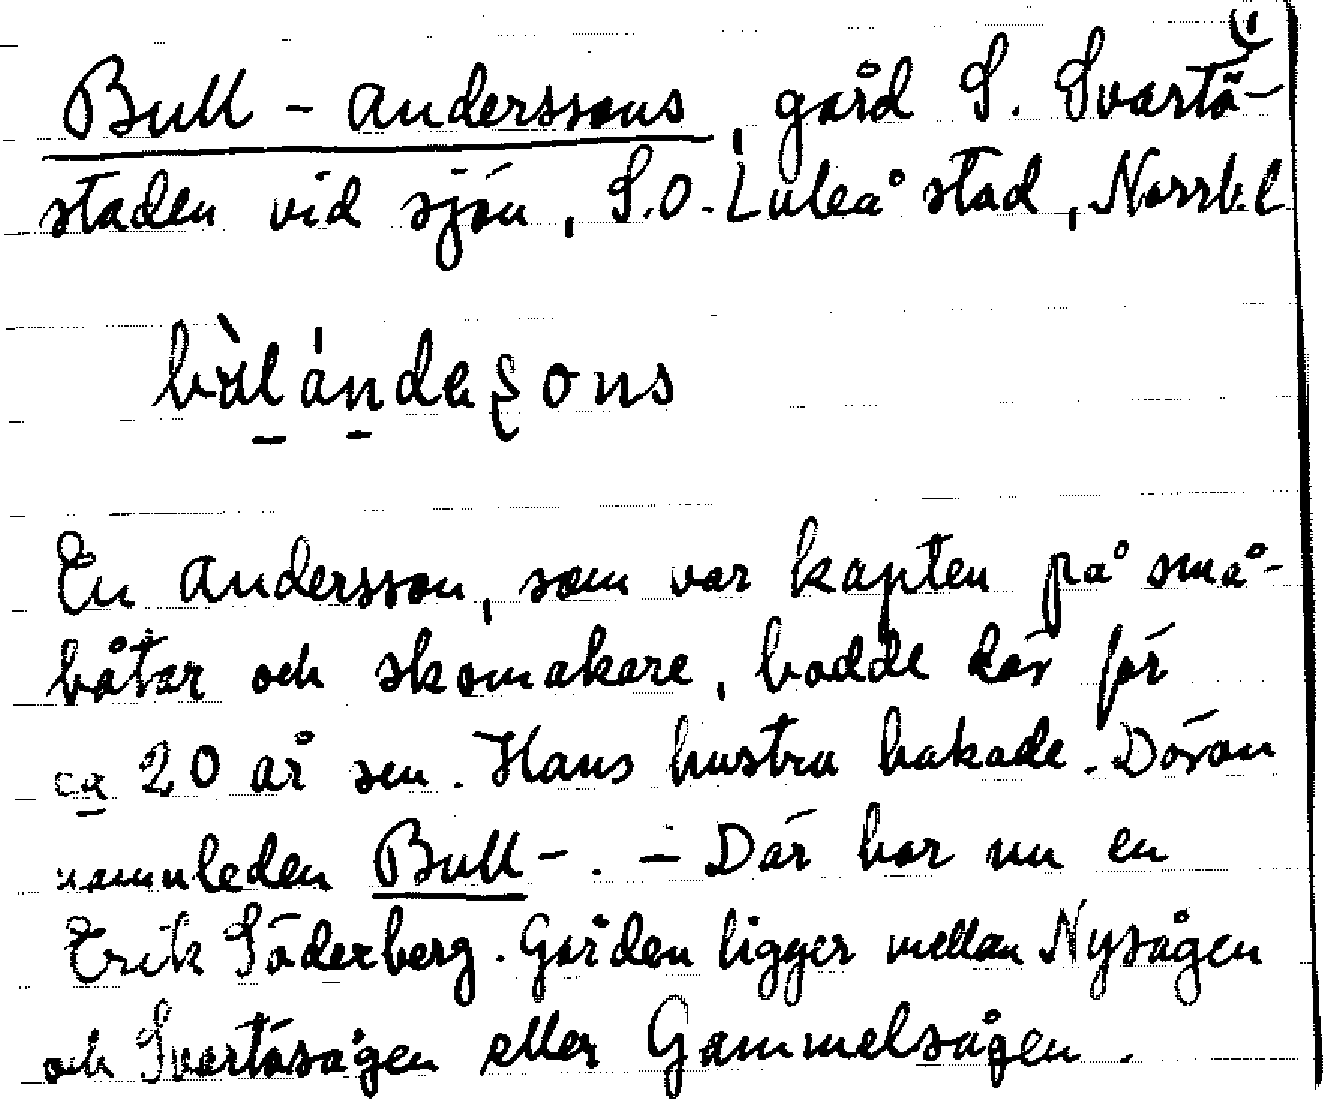 Bull-Anderssons, gård S. Svartö-
staden vid sjön, S.O. Luleå stad, Norrb.l
En Andersson, som var kapten på små-
båtar och skomakare, bodde där för
ca 20 år sen. Hans hustru bakade. Därav
namnleden Bull-. - Där bor nu en
Erik Söderberg. Gården ligger mellan Nysågen
och Svartösågen eller Gammelsågen.